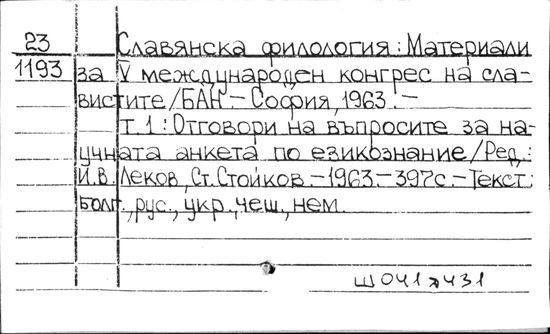 23 Славянска филология: Материали
1193 за V международен конгрес на сла-
вистите/БАН.- София, 1963.-
Т.1: Отговори на въпросите за на-
учната анкета по езикознание/Ред.:
И.В. Леков, Ст. Стойков.-1963.-397с.-Текст:
болг., рус., укр., чеш., нем.